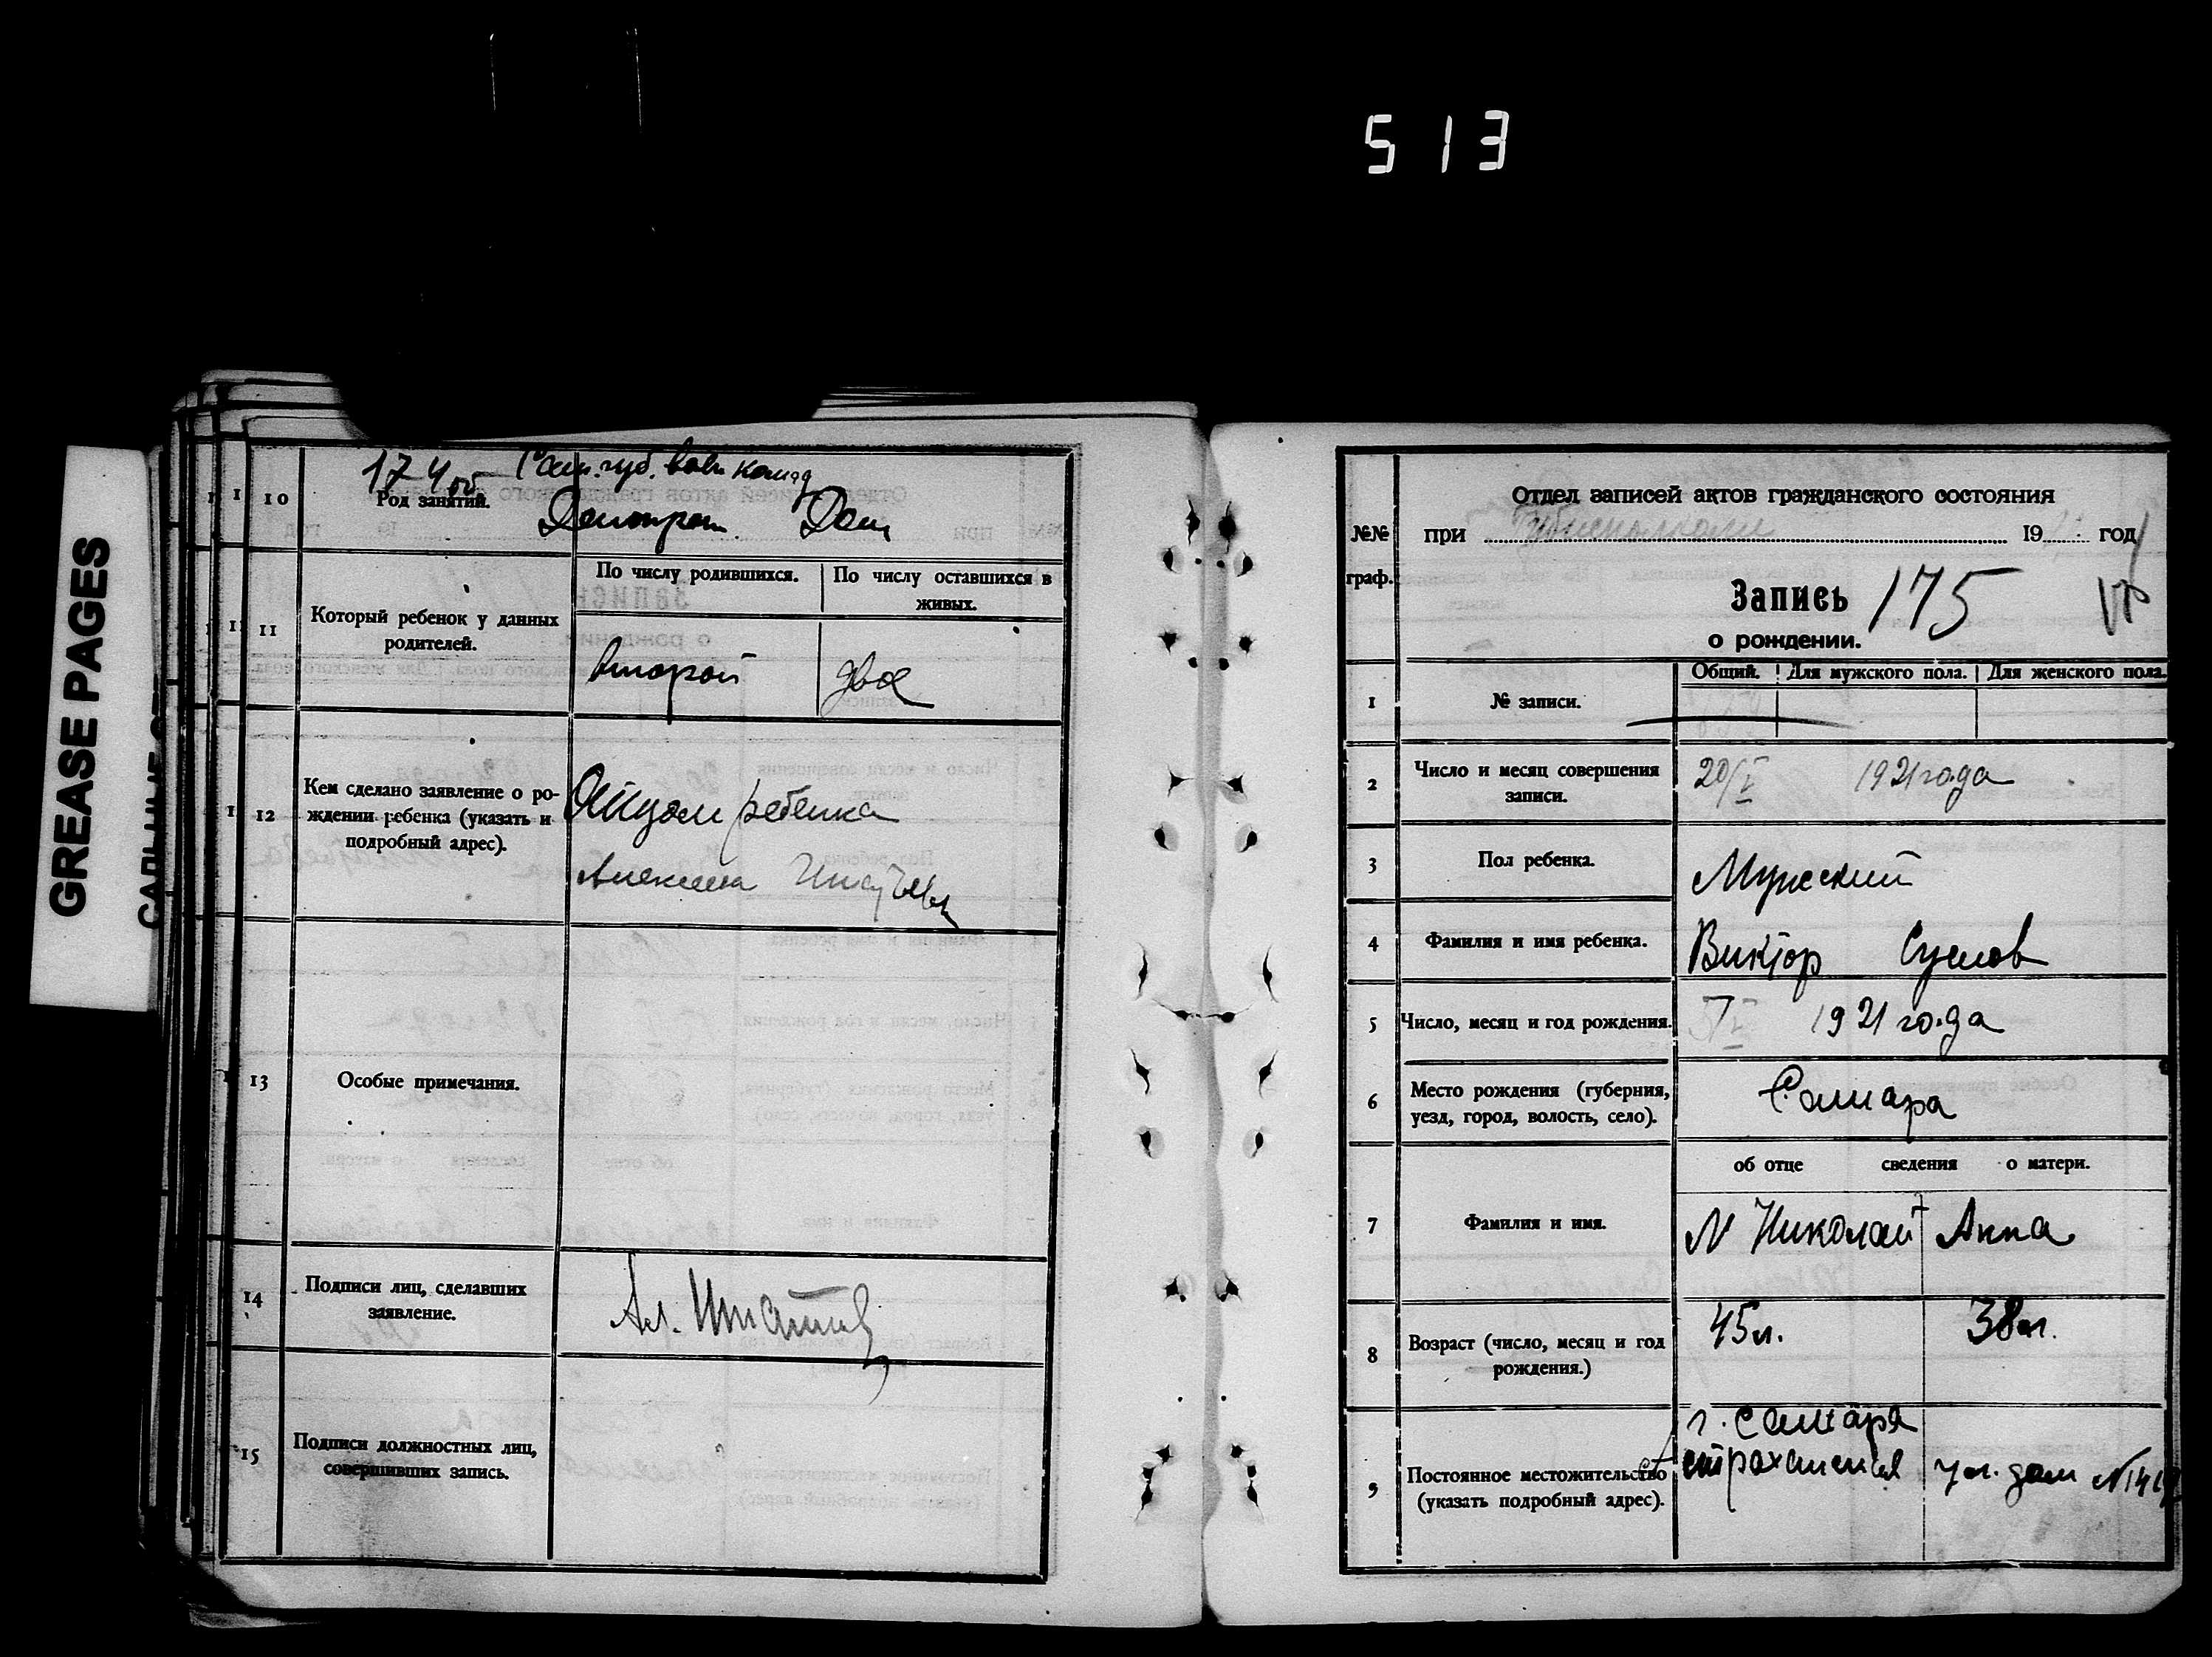 513
GREASE PAGES
174 об
10
Род занятий.
Дом
11
Который ребенок у данных
родителей.
По числу родившихся.
По числу оставшихся в
живых.
второй
двое
12
Кем сделано заявление о ро-
ждении ребенка (указать и
подробный адрес).
Отцом ребенка
13
Особые примечания.
14
Подписи лиц, сделавших
заявление.
Ал.
15
Подписи должностных лиц,
совершивших запись.
№№
граф.
Отдел записей актов гражданского состояния
при
19
год
Запись 175
о рождении.
1
№ записи.
Общий.
Для мужского пола.
Для женского пола.
2
Число и месяц совершения
записи.
20/V 1921 года
3
Пол ребенка.
Мужской
4
Фамилия и имя ребенка.
Виктор Суслов
5
Число, месяц и год рождения.
5/V 1921 года
6
Место рождения (губерния,
уезд, город, волость, село).
Самара
об отце сведения о матери.
7
Фамилия и имя.
Николай Анна
8
Возраст (число, месяц и год
рождения.)
45 л. 38 л.
9
Постоянное местожительство
(указать подробный адрес).
г. Самара
ул. дом